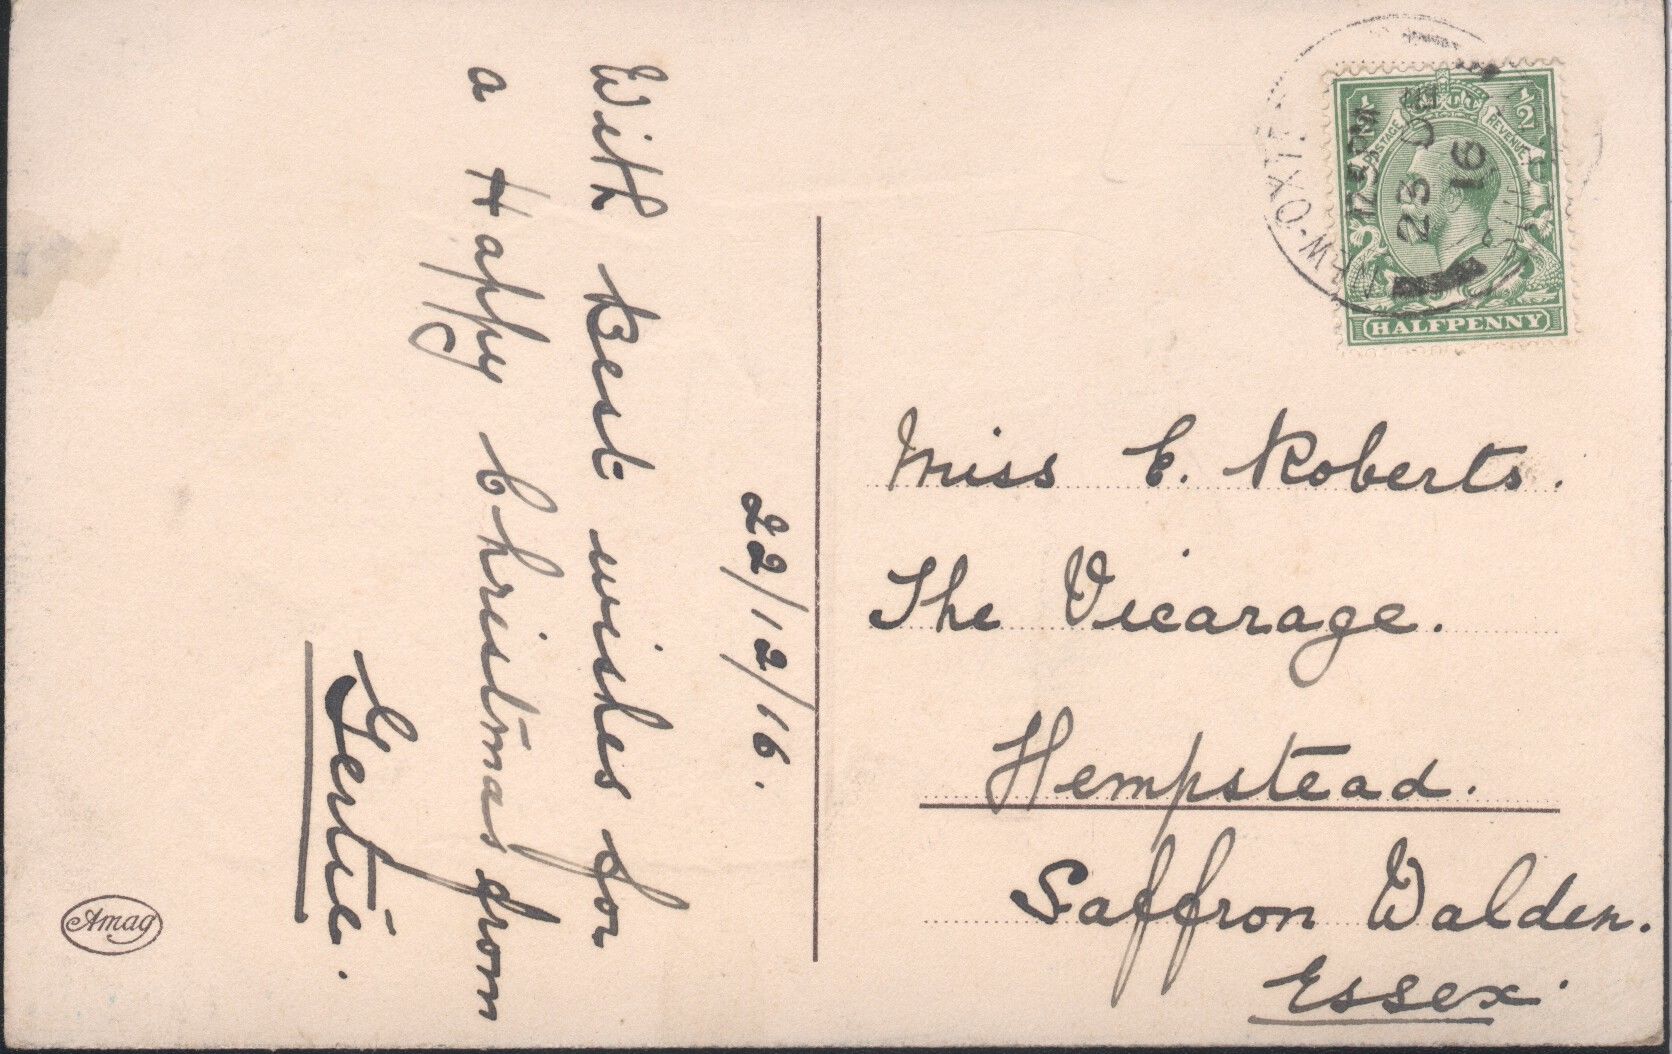 22/12/16.
With Best wishes for
a Happy Christmas from
Gertie.
Amag
½ ½
POSTAGE REVENUE
HALFPENNY
12.15 PM
23 DE
16
Miss E. Roberts.
The Vicarage.
Hempstead.
Saffron Walden.
Essex.